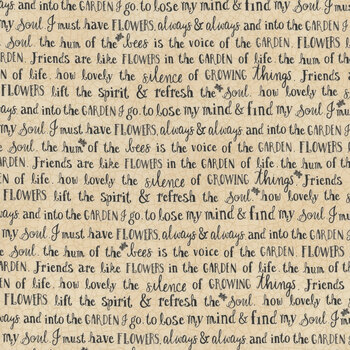 ays and into the GARDEN I go, to lose my mind & find my Soul. I
my Soul. I must have FLOWERS, always & always and into the
Soul. the hum of the bees is the voice of the GARDEN. FLOWERS
Friends are like FLOWERS in the GARDEN of life. the hum of
of life. how lovely the silence of GROWING things. Friends
FLOWERS lift the Spirit, & refresh the Soul. how lovely the
ays and into the GARDEN I go, to lose my mind & find my Soul. I
my Soul. I must have FLOWERS, always & always and into the
Soul. the hum of the bees is the voice of the GARDEN. FLOWERS
RDEN. Friends are like FLOWERS in the GARDEN of life. the hum
EN of life. how lovely the silence of GROWING things. Friends
FLOWERS lift the Spirit, & refresh the Soul. how lovely the
ways and into the GARDEN I go, to lose my mind & find my Soul
my Soul. I must have FLOWERS, always & always and into the
he Soul. the hum of the bees is the voice of the GARDEN. FLOWERS
ARDEN. Friends are like FLOWERS in the GARDEN of life. the hum
DEN of life. how lovely the silence of GROWING things. Friends
FLOWERS lift the Spirit, & refresh the Soul. how lovely
ways and into the GARDEN I go, to lose my mind & find my Soul
my Soul. I must have FLOWERS, always & always and into